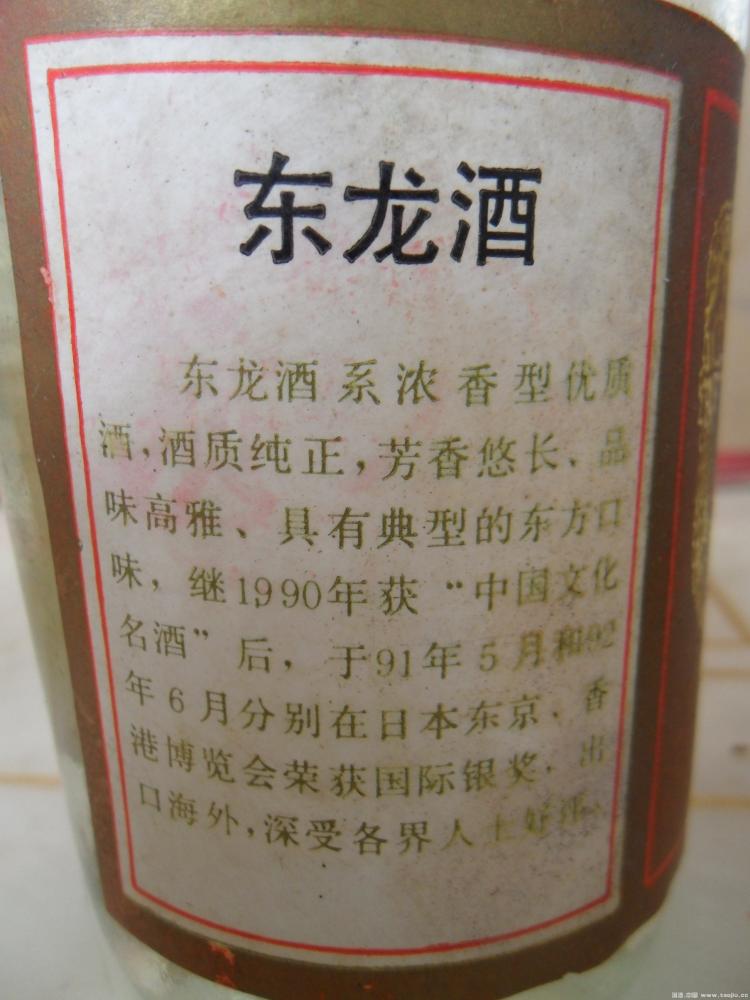 东龙酒
东龙酒系浓香型优质
酒，酒质纯正，芳香悠长、品
味高雅、具有典型的东方口
味，继1990年获“中国文化
名酒”后，于91年5月和92
年6月分别在日本东京、香
港博览会荣获国际银奖，出
口海外，深受各界人士好评、
www.taojio.cc